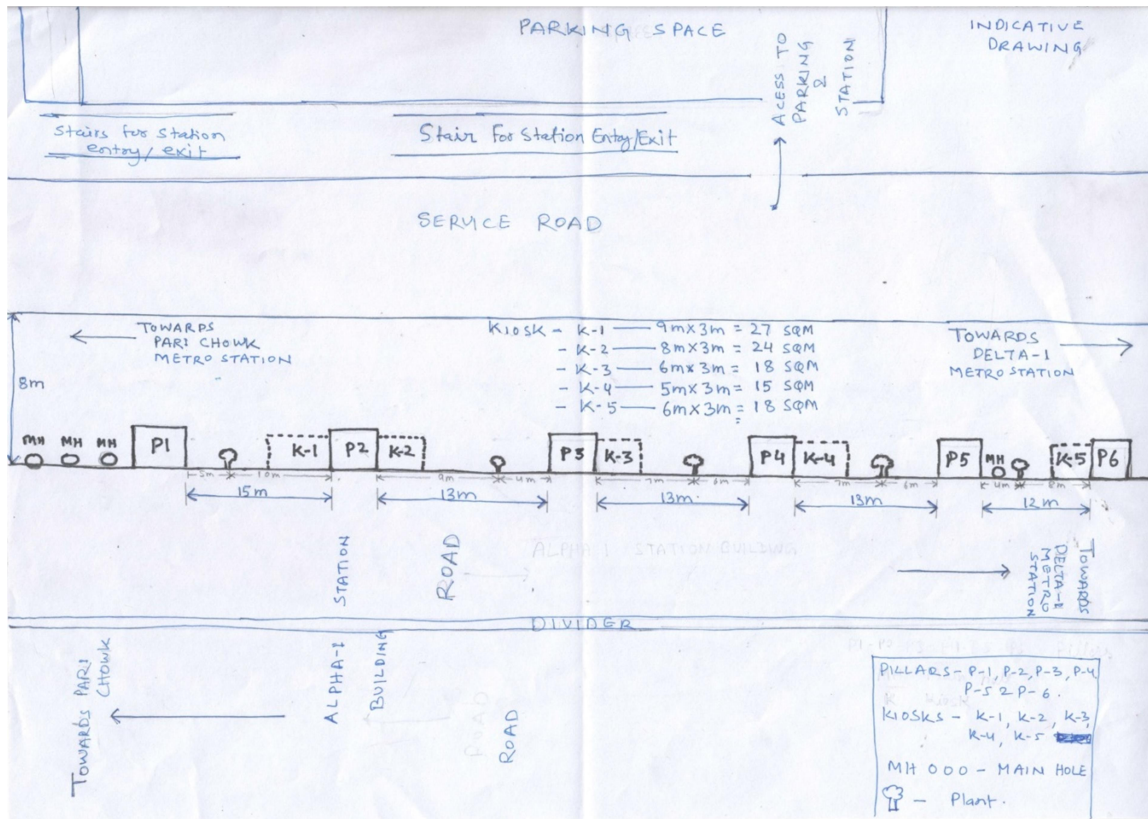 PARKING SPACE
INDICATIVE
DRAWING
ACESS TO
PARKING
&
STATION
Stairs for Station
entry/exit
Stair For Station Entry/Exit
SERVICE ROAD
TOWARDS
PARI CHOWK
METRO STATION
KIOSK - K-1 — 9m x 3m = 27 SQM
- K-2 — 8m x 3m = 24 SQM
- K-3 — 6m x 3m = 18 SQM
- K-4 — 5m x 3m = 15 SQM
- K-5 — 6m x 3m = 18 SQM
TOWARDS
DELTA-1
METRO STATION
8m
MH MH MH P1 K-1 P2 K-2 P3 K-3 P4 K-4 P5 MH K-5 P6
5m 10m 9m 4m 7m 6m 7m 6m 4m 8m
15m 13m 13m 13m 12m
ALPHA-I STATION BUILDING
STATION
ROAD
TOWARDS
DELTA-1
METRO
STATION
DIVIDER
TOWARDS PARI
CHOWK
ALPHA-I
BUILDING
ROAD
ROAD
PILLARS - P-1, P-2, P-3, P-4
P-5 & P-6.
KIOSKS - K-1, K-2, K-3,
K-4, K-5
MH OOO - MAIN HOLE
- Plant.